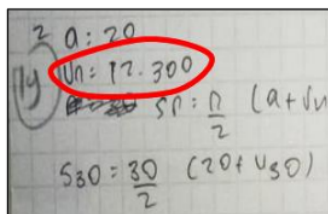 2 a: 20
14 Un: 12.300
Sn: n/2 (a+Un
S30: 30/2 (20+U30)